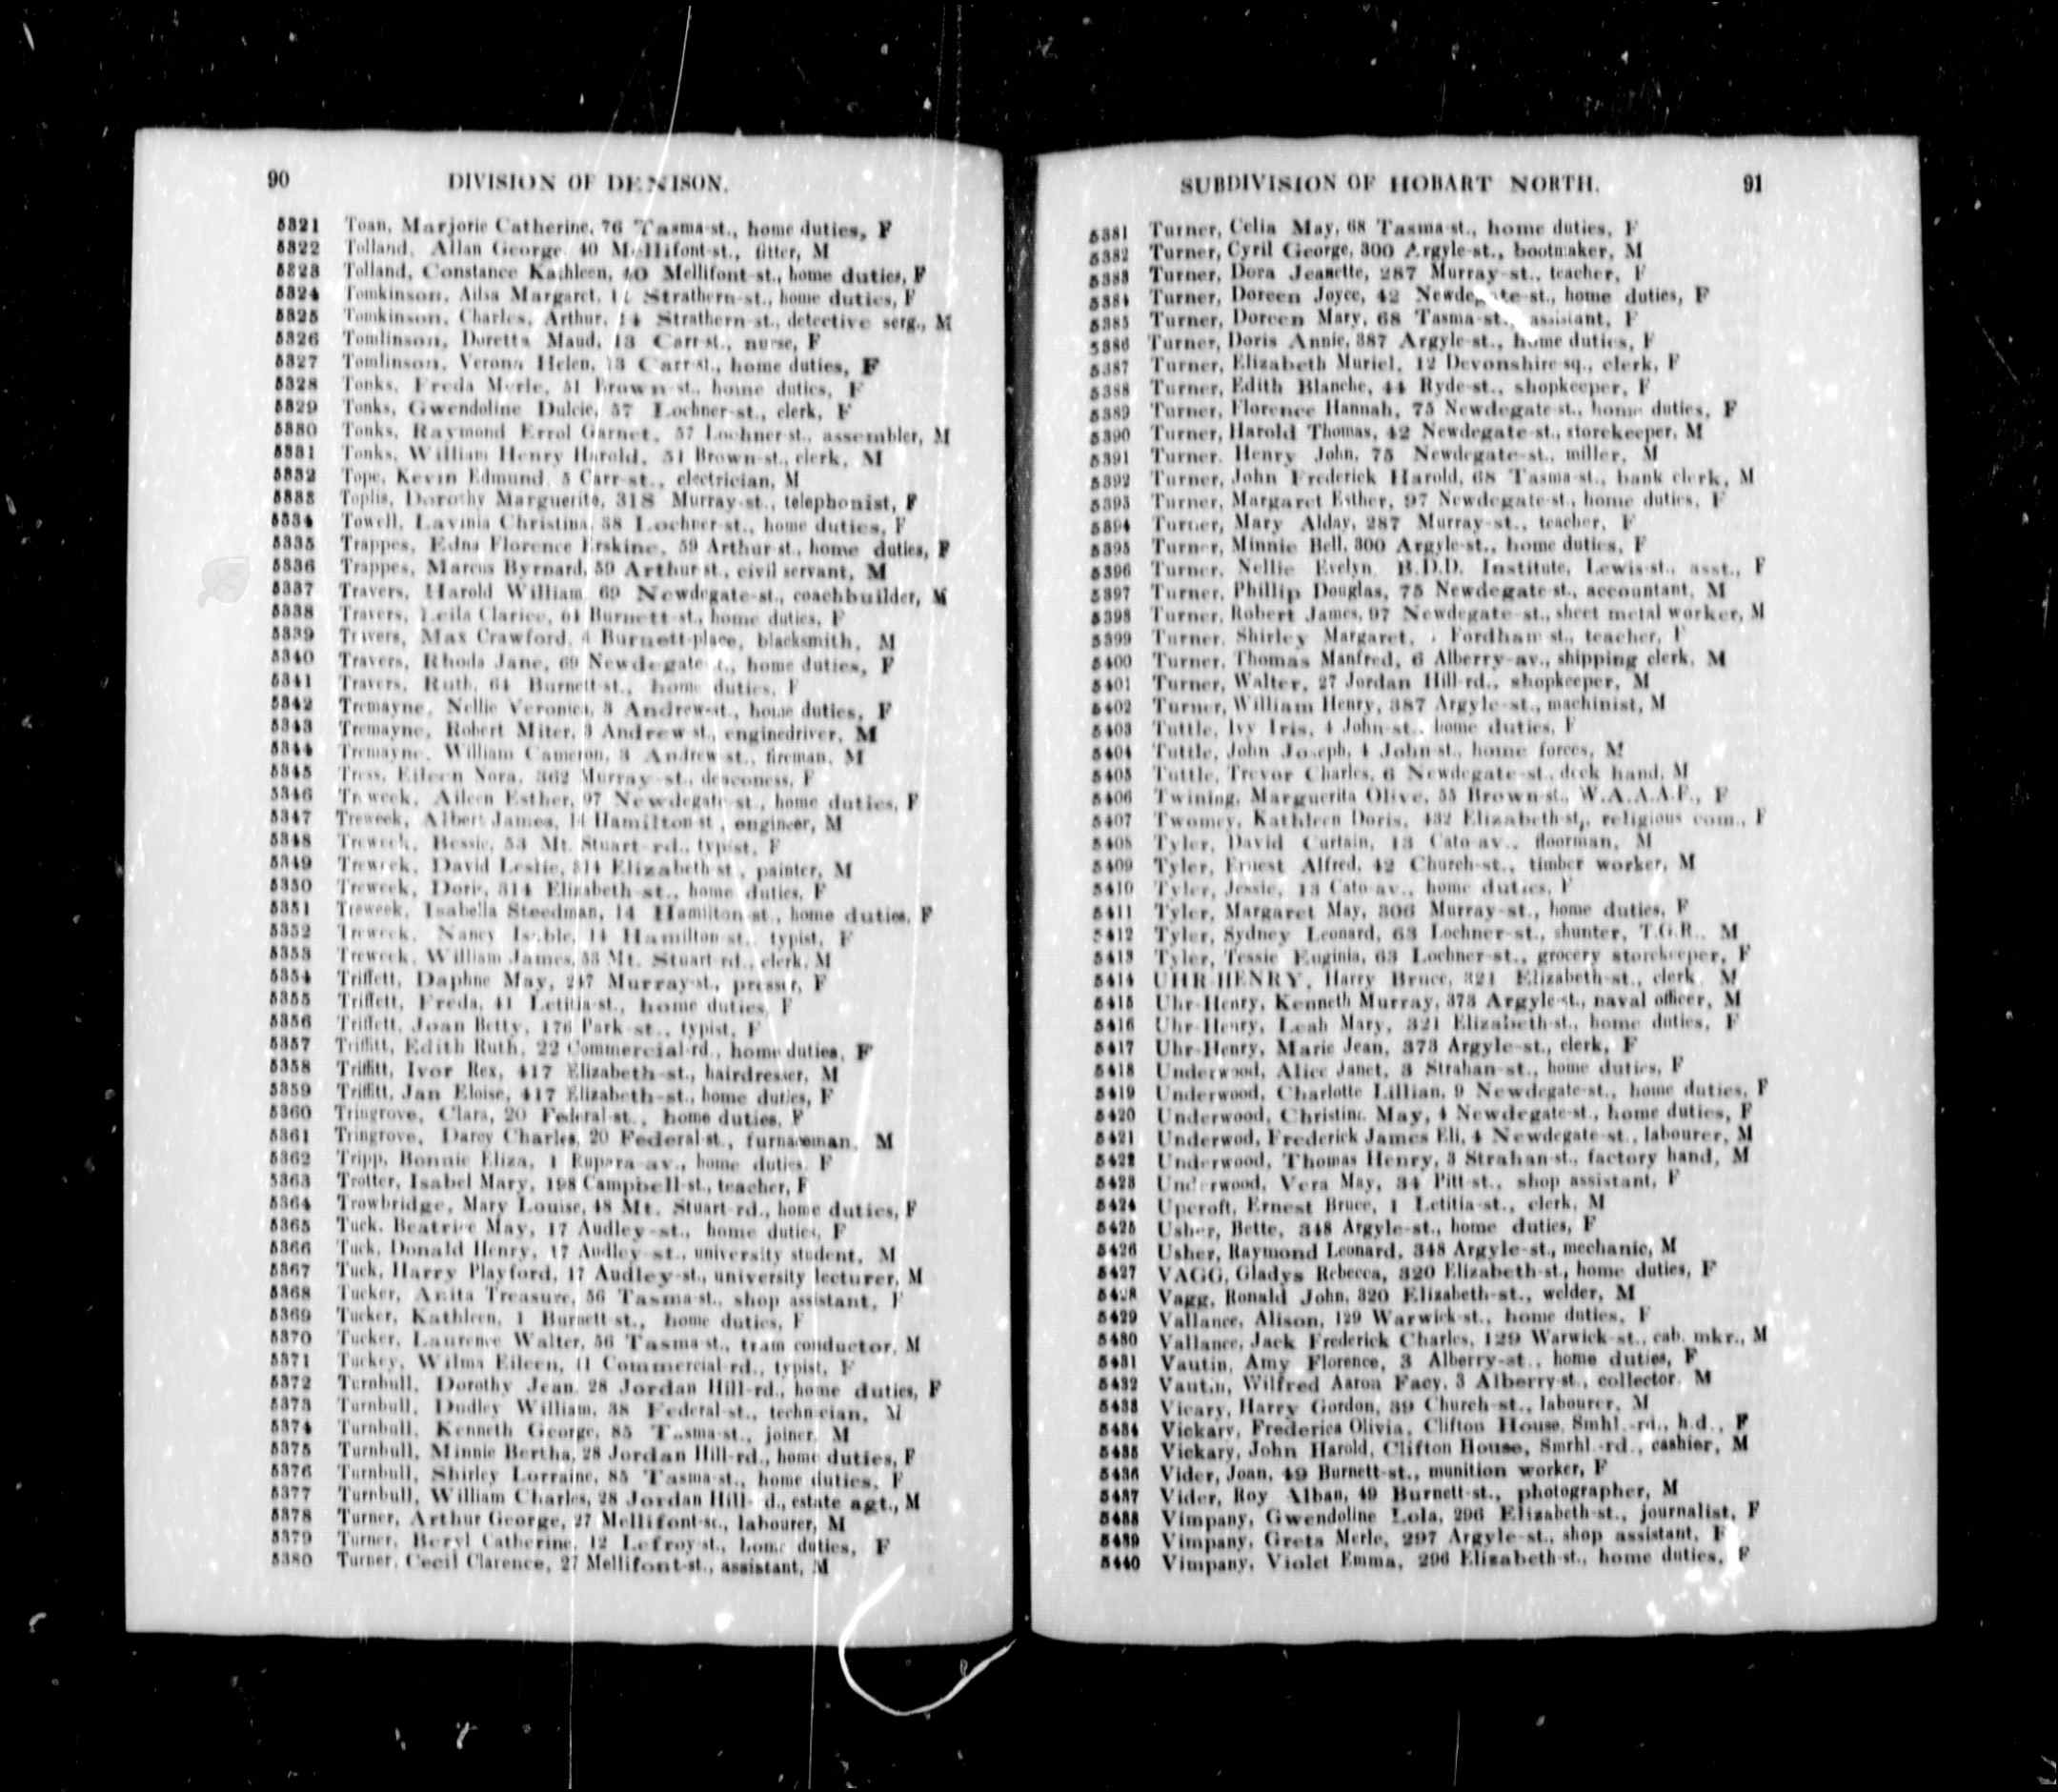 90 DIVISION OF DENISON.
5321 Toan, Marjorie Catherine, 76 Tasma-st., home duties, F
5322 Tolland, Allan George, 40 Mellifont-st., fitter, M
5323 Tolland, Constance Kathleen, 40 Mellifont-st., home duties, F
5324 Tomkinson, Ailsa Margaret, 14 Strathern-st., home duties, F
5325 Tomkinson, Charles, Arthur, 14 Strathern-st., detective serg., M
5326 Tomlinson, Doretta Maud, 13 Carr-st., nurse, F
5327 Tomlinson, Verona Helen, 13 Carr-st., home duties, F
5328 Tonks, Freda Merle, 51 Brown-st., home duties, F
5329 Tonks, Gwendoline Dulcie, 57 Lochner-st., clerk, F
5330 Tonks, Raymond Errol Garnet, 57 Lochner-st., assembler, M
5331 Tonks, William Henry Harold, 51 Brown-st., clerk, M
5332 Tope, Kevin Edmund, 5 Carr-st., electrician, M
5333 Toplis, Dorothy Marguerite, 318 Murray-st., telephonist, F
5334 Towell, Lavinia Christina, 38 Lochner-st., home duties, F
5335 Trappes, Edna Florence Erskine, 59 Arthur-st., home duties, F
5336 Trappes, Marcus Byrnard, 59 Arthur-st., civil servant, M
5337 Travers, Harold William, 69 Newdegate-st., coachbuilder, M
5338 Travers, Leila Clarice, 64 Burnett-st., home duties, F
5339 Travers, Max Crawford, 4 Burnett-place, blacksmith, M
5340 Travers, Rhoda Jane, 69 Newdegate-st., home duties, F
5341 Travers, Ruth, 64 Burnett-st., home duties, F
5342 Tremayne, Nellie Veronica, 3 Andrew-st., home duties, F
5343 Tremayne, Robert Miter, 3 Andrew-st., enginedriver, M
5344 Tremayne, William Cameron, 3 Andrew-st., fireman, M
5345 Tress, Eileen Nora, 362 Murray-st., deaconess, F
5346 Treweek, Aileen Esther, 97 Newdegate-st., home duties, F
5347 Treweek, Albert James, 14 Hamilton-st., engineer, M
5348 Treweek, Bessie, 53 Mt. Stuart-rd., typist, F
5349 Treweek, David Leslie, 314 Elizabeth-st., painter, M
5350 Treweek, Doris, 314 Elizabeth-st., home duties, F
5351 Treweek, Isabella Steedman, 14 Hamilton-st., home duties, F
5352 Treweek, Nancy Isable, 14 Hamilton-st., typist, F
5353 Treweek, William James, 53 Mt. Stuart-rd., clerk, M
5354 Triffett, Daphne May, 247 Murray-st., presser, F
5355 Triffett, Freda, 41 Letitia-st., home duties, F
5356 Triffett, Joan Betty, 176 Park-st., typist, F
5357 Triffitt, Edith Ruth, 22 Commercial-rd., home duties, F
5358 Triffitt, Ivor Rex, 417 Elizabeth-st., hairdresser, M
5359 Triffitt, Jan Eloise, 417 Elizabeth-st., home duties, F
5360 Tringrove, Clara, 20 Federal-st., home duties, F
5361 Tringrove, Darcy Charles, 20 Federal-st., furnaceman, M
5362 Tripp, Bonnie Eliza, 1 Rupara-av., home duties, F
5363 Trotter, Isabel Mary, 198 Campbell-st., teacher, F
5364 Trowbridge, Mary Louise, 48 Mt. Stuart-rd., home duties, F
5365 Tuck, Beatrice May, 17 Audley-st., home duties, F
5366 Tuck, Donald Henry, 17 Audley-st., university student, M
5367 Tuck, Harry Playford, 17 Audley-st., university lecturer, M
5368 Tucker, Anita Treasure, 56 Tasma-st., shop assistant, F
5369 Tucker, Kathleen, 1 Burnett-st., home duties, F
5370 Tucker, Laurence Walter, 56 Tasma-st., tram conductor, M
5371 Tuckey, Wilma Eileen, 11 Commercial-rd., typist, F
5372 Turnbull, Dorothy Jean, 28 Jordan Hill-rd., home duties, F
5373 Turnbull, Dudley William, 38 Federal-st., technician, M
5374 Turnbull, Kenneth George, 85 Tasma-st., joiner, M
5375 Turnbull, Minnie Bertha, 28 Jordan Hill-rd., home duties, F
5376 Turnbull, Shirley Lorraine, 85 Tasma-st., home duties, F
5377 Turnbull, William Charles, 28 Jordan Hill-rd., estate agt., M
5378 Turner, Arthur George, 27 Mellifont-st., labourer, M
5379 Turner, Beryl Catherine, 12 Lefroy-st., home duties, F
5380 Turner, Cecil Clarence, 27 Mellifont-st., assistant, M
SUBDIVISION OF HOBART NORTH. 91
5381 Turner, Celia May, 68 Tasma-st., home duties, F
5382 Turner, Cyril George, 300 Argyle-st., bootmaker, M
5383 Turner, Dora Jeanette, 287 Murray-st., teacher, F
5384 Turner, Doreen Joyce, 42 Newdegate-st., home duties, F
5385 Turner, Doreen Mary, 68 Tasma-st., assistant, F
5386 Turner, Doris Annie, 387 Argyle-st., home duties, F
5387 Turner, Elizabeth Muriel, 12 Devonshire-sq., clerk, F
5388 Turner, Edith Blanche, 44 Ryde-st., shopkeeper, F
5389 Turner, Florence Hannah, 75 Newdegate-st., home duties, F
5390 Turner, Harold Thomas, 42 Newdegate-st., storekeeper, M
5391 Turner, Henry John, 75 Newdegate-st., miller, M
5392 Turner, John Frederick Harold, 68 Tasma-st., bank clerk, M
5393 Turner, Margaret Esther, 97 Newdegate-st., home duties, F
5394 Turner, Mary Alday, 287 Murray-st., teacher, F
5395 Turner, Minnie Bell, 300 Argyle-st., home duties, F
5396 Turner, Nellie Evelyn, B.D.D. Institute, Lewis-st., asst., F
5397 Turner, Phillip Douglas, 75 Newdegate-st., accountant, M
5398 Turner, Robert James, 97 Newdegate-st., sheet metal worker, M
5399 Turner, Shirley Margaret, Fordham-st., teacher, F
5400 Turner, Thomas Manfred, 6 Alberry-av., shipping clerk, M
5401 Turner, Walter, 27 Jordan Hill-rd., shopkeeper, M
5402 Turner, William Henry, 387 Argyle-st., machinist, M
5403 Tuttle, Ivy Iris, 4 John-st., home duties, F
5404 Tuttle, John Joseph, 4 John-st., home forces, M
5405 Tuttle, Trevor Charles, 6 Newdegate-st., deck hand, M
5406 Twining, Marguerita Olive, 55 Brown-st., W.A.A.A.F., F
5407 Twomey, Kathleen Doris, 432 Elizabeth-st., religious com., F
5408 Tyler, David Curtain, 13 Cato-av., floorman, M
5409 Tyler, Ernest Alfred, 42 Church-st., timber worker, M
5410 Tyler, Jessie, 13 Cato-av., home duties, F
5411 Tyler, Margaret May, 306 Murray-st., home duties, F
5412 Tyler, Sydney Leonard, 63 Lochner-st., shunter, T.G.R., M
5413 Tyler, Tessie Euginia, 63 Lochner-st., grocery storekeeper, F
5414 UHR-HENRY, Harry Bruce, 321 Elizabeth-st., clerk, M
5415 Uhr-Henry, Kenneth Murray, 373 Argyle-st., naval officer, M
5416 Uhr-Henry, Leah Mary, 321 Elizabeth-st., home duties, F
5417 Uhr-Henry, Marie Jean, 373 Argyle-st., clerk, F
5418 Underwood, Alice Janet, 3 Strahan-st., home duties, F
5419 Underwood, Charlotte Lillian, 9 Newdegate-st., home duties, F
5420 Underwood, Christine May, 4 Newdegate-st., home duties, F
5421 Underwod, Frederick James Eli, 4 Newdegate-st., labourer, M
5422 Underwood, Thomas Henry, 3 Strahan-st., factory hand, M
5423 Underwood, Vera May, 34 Pitt-st., shop assistant, F
5424 Upcroft, Ernest Bruce, 1 Letitia-st., clerk, M
5425 Usher, Bette, 348 Argyle-st., home duties, F
5426 Usher, Raymond Leonard, 348 Argyle-st., mechanic, M
5427 VAGG, Gladys Rebecca, 320 Elizabeth-st., home duties, F
5428 Vagg, Ronald John, 320 Elizabeth-st., welder, M
5429 Vallance, Alison, 129 Warwick-st., home duties, F
5430 Vallance, Jack Frederick Charles, 129 Warwick-st., cab. mkr., M
5431 Vautin, Amy Florence, 3 Alberry-st., home duties, F
5432 Vautin, Wilfred Aaron Facy, 3 Alberry-st., collector, M
5433 Vicary, Harry Gordon, 39 Church-st., labourer, M
5434 Vickary, Frederica Olivia, Clifton House, Smhl.-rd., h.d., F
5435 Vickary, John Harold, Clifton House, Smrhl.-rd., cashier, M
5436 Vider, Joan, 49 Burnett-st., munition worker, F
5437 Vider, Roy Alban, 49 Burnett-st., photographer, M
5438 Vimpany, Gwendoline Lola, 296 Elizabeth-st., journalist, F
5439 Vimpany, Greta Merle, 297 Argyle-st., shop assistant, F
5440 Vimpany, Violet Emma, 296 Elizabeth-st., home duties, F